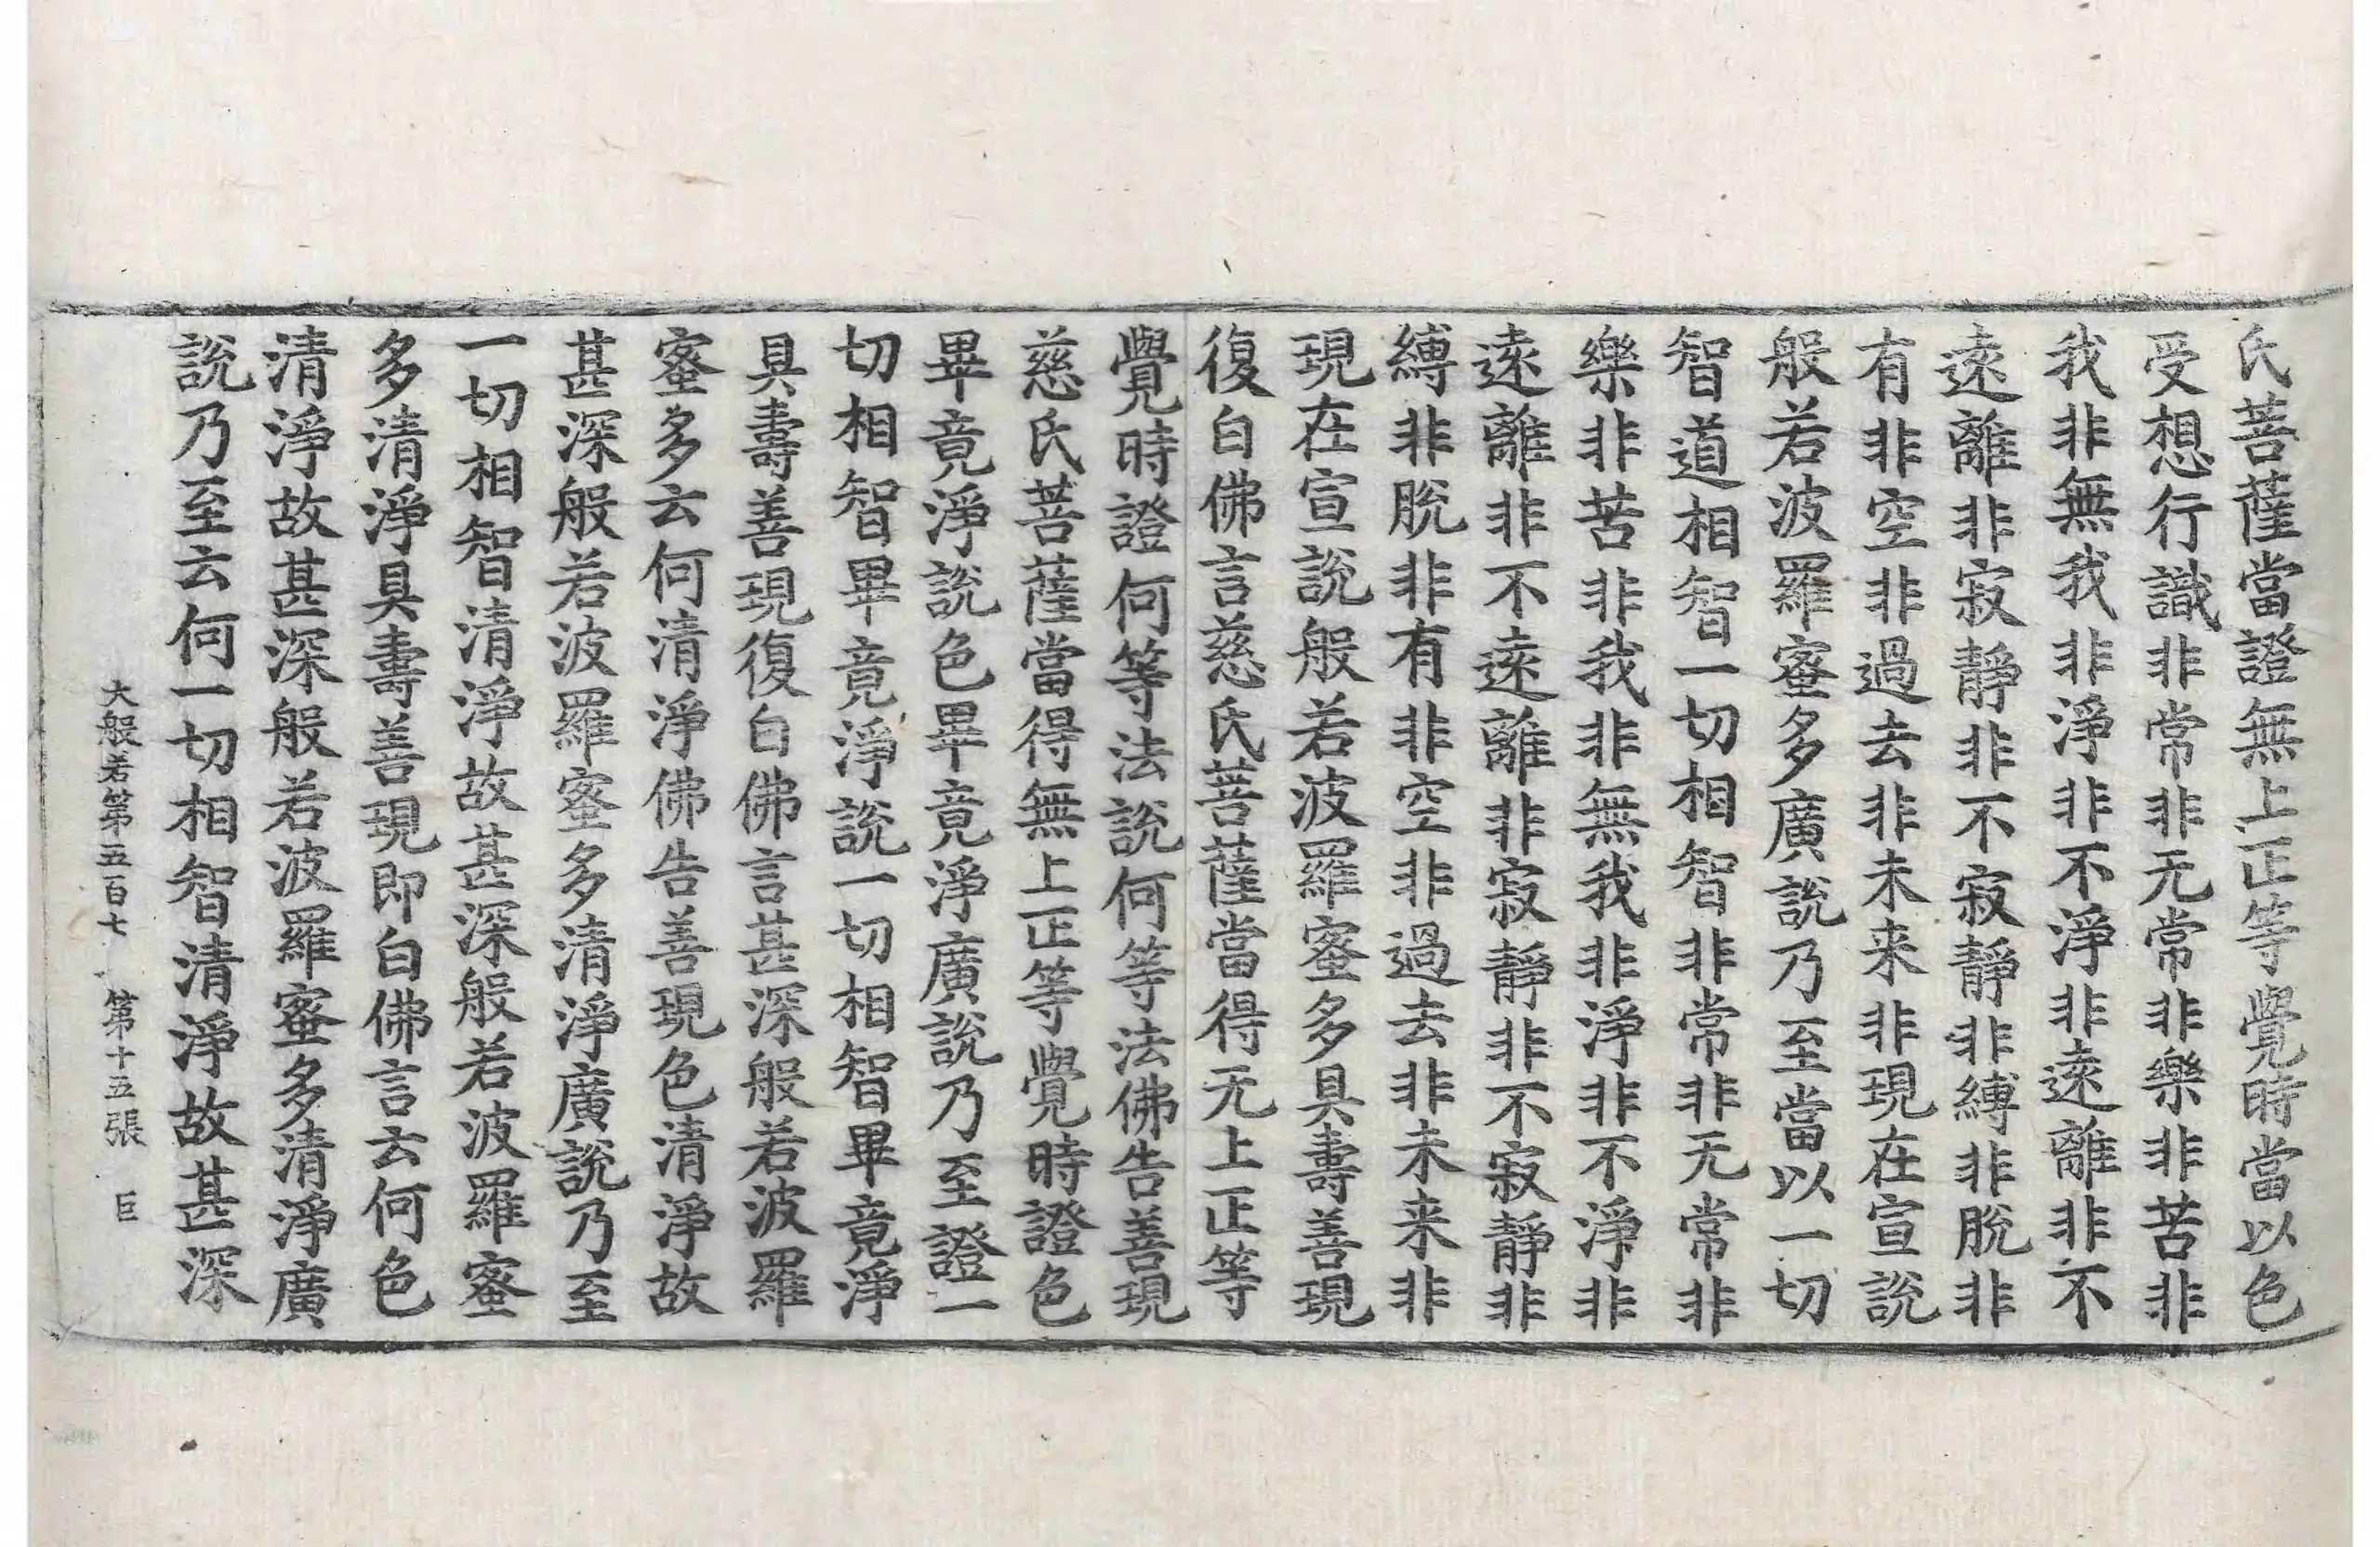 氏菩薩當證無上正等覺時當以色
受想行識非常非无常非樂非苦非
我非無我非淨非不淨非遠離非不
遠離非寂靜非不寂靜非縛非脫非
有非空非過去非未来非現在宣說
般若波羅蜜多廣說乃至當以一切
智道相智一切相智非常非无常非
樂非苦非我非無我非淨非不淨非
遠離非不遠離非寂靜非不寂靜非
縛非脫非有非空非過去非未来非
現在宣說般若波羅蜜多具壽善現
復白佛言慈氏菩薩當得无上正等
覺時證何等法說何等法佛告善現
慈氏菩薩當得無上正等覺時證色
畢竟淨說色畢竟淨廣說乃至證一
切相智畢竟淨說一切相智畢竟淨
具壽善現復白佛言甚深般若波羅
蜜多云何清淨佛告善現色清淨故
甚深般若波羅蜜多清淨廣說乃至
一切相智清淨故甚深般若波羅蜜
多清淨具壽善現即白佛言云何色
清淨故甚深般若波羅蜜多清淨廣
說乃至云何一切相智清淨故甚深
大般若第五百七 第十五張 巨